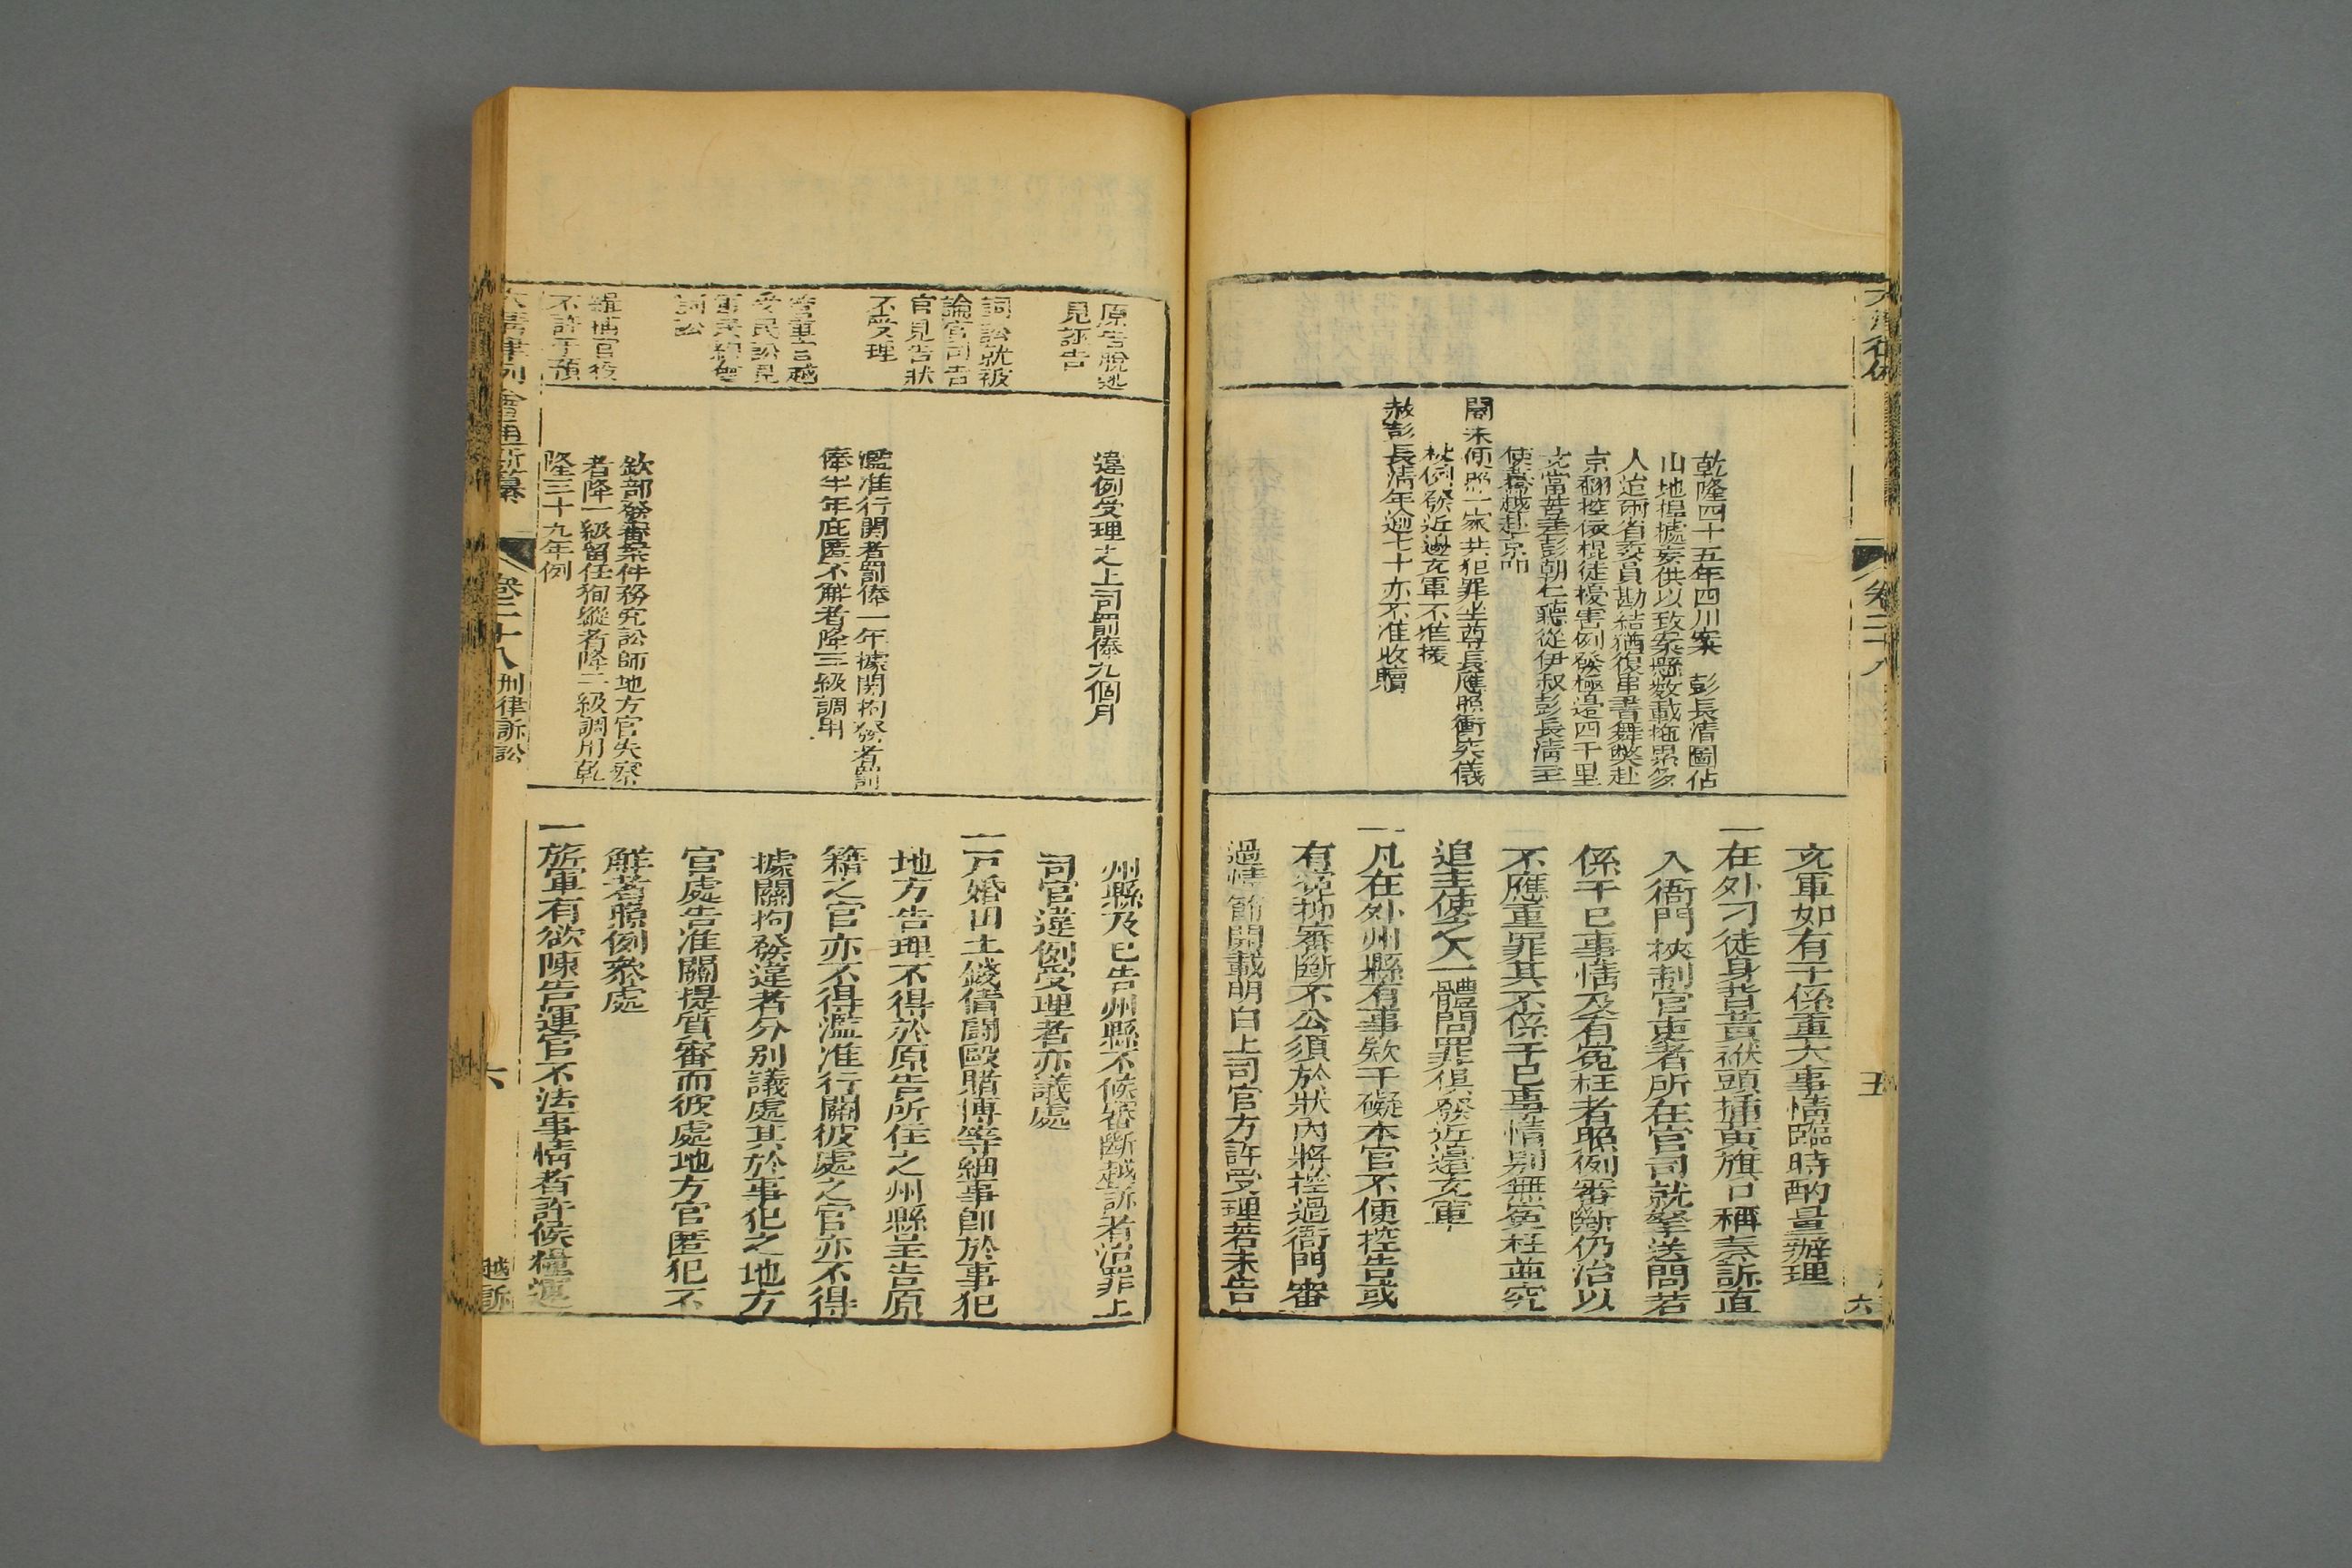 乾隆四十五年四川案　彭長清圖佔
山地揑據妄供以致案懸數載拖累多
人迨兩省委員勘結猶復串書舞獘赴
京翻控依棍徒擾害例發極邊四千里
充當苦差彭朝仁聽從伊叔彭長清主
使屢越赴京叩
閽未便照一家共犯罪坐尊長應照衝突儀
仗例發近邊充軍不准援
赦彭長清年逾七十亦不准收贖
充軍如有干係重大事情臨時酌量辦理
一在外刁徒身背黃袱頭插黃旗口稱奏訴直
入衙門挾制官吏者所在官司就拏送問若
係干已事情及有寃枉者照例審斷仍治以
不應重罪其不係干已事情別無寃枉並究
追主使之人一體問罪俱發近邊充軍
一凡在外州縣有事欵干礙本官不便控告或
有寃抑審斷不公須於狀內將控過衙門審
過情節開載明白上司官方許受理若未告
卷二十八
五
原告脫逃
見誣告
詞訟就被
論官司告
官見告狀
不受理
管軍官越
受民訟見
軍民約會
詞訟
羅織官役
不許干預
違例受理之上司罰俸九個月
濫准行關者罰俸一年據關拘發者罰
俸半年庇匿不解者降三級調用
欽部發審案件務究訟師地方官失察
者降一級留任狥縱者降二級調用乾
隆三十九年例
州縣及已告州縣不候審斷越訴者治罪上
司官違例受理者亦議處
一戶婚田土錢債鬪毆賭博等細事卽於事犯
地方告理不得於原告所住之州縣呈告原
籍之官亦不得濫准行關彼處之官亦不得
據關拘發違者分別議處其於事犯之地方
官處告准關提質審而彼處地方官匿犯不
解者照例叅處
一旂軍有欲陳告運官不法事情者許候糧運
大清律例會通新纂
卷二十八
刑律訴訟
六
越訴